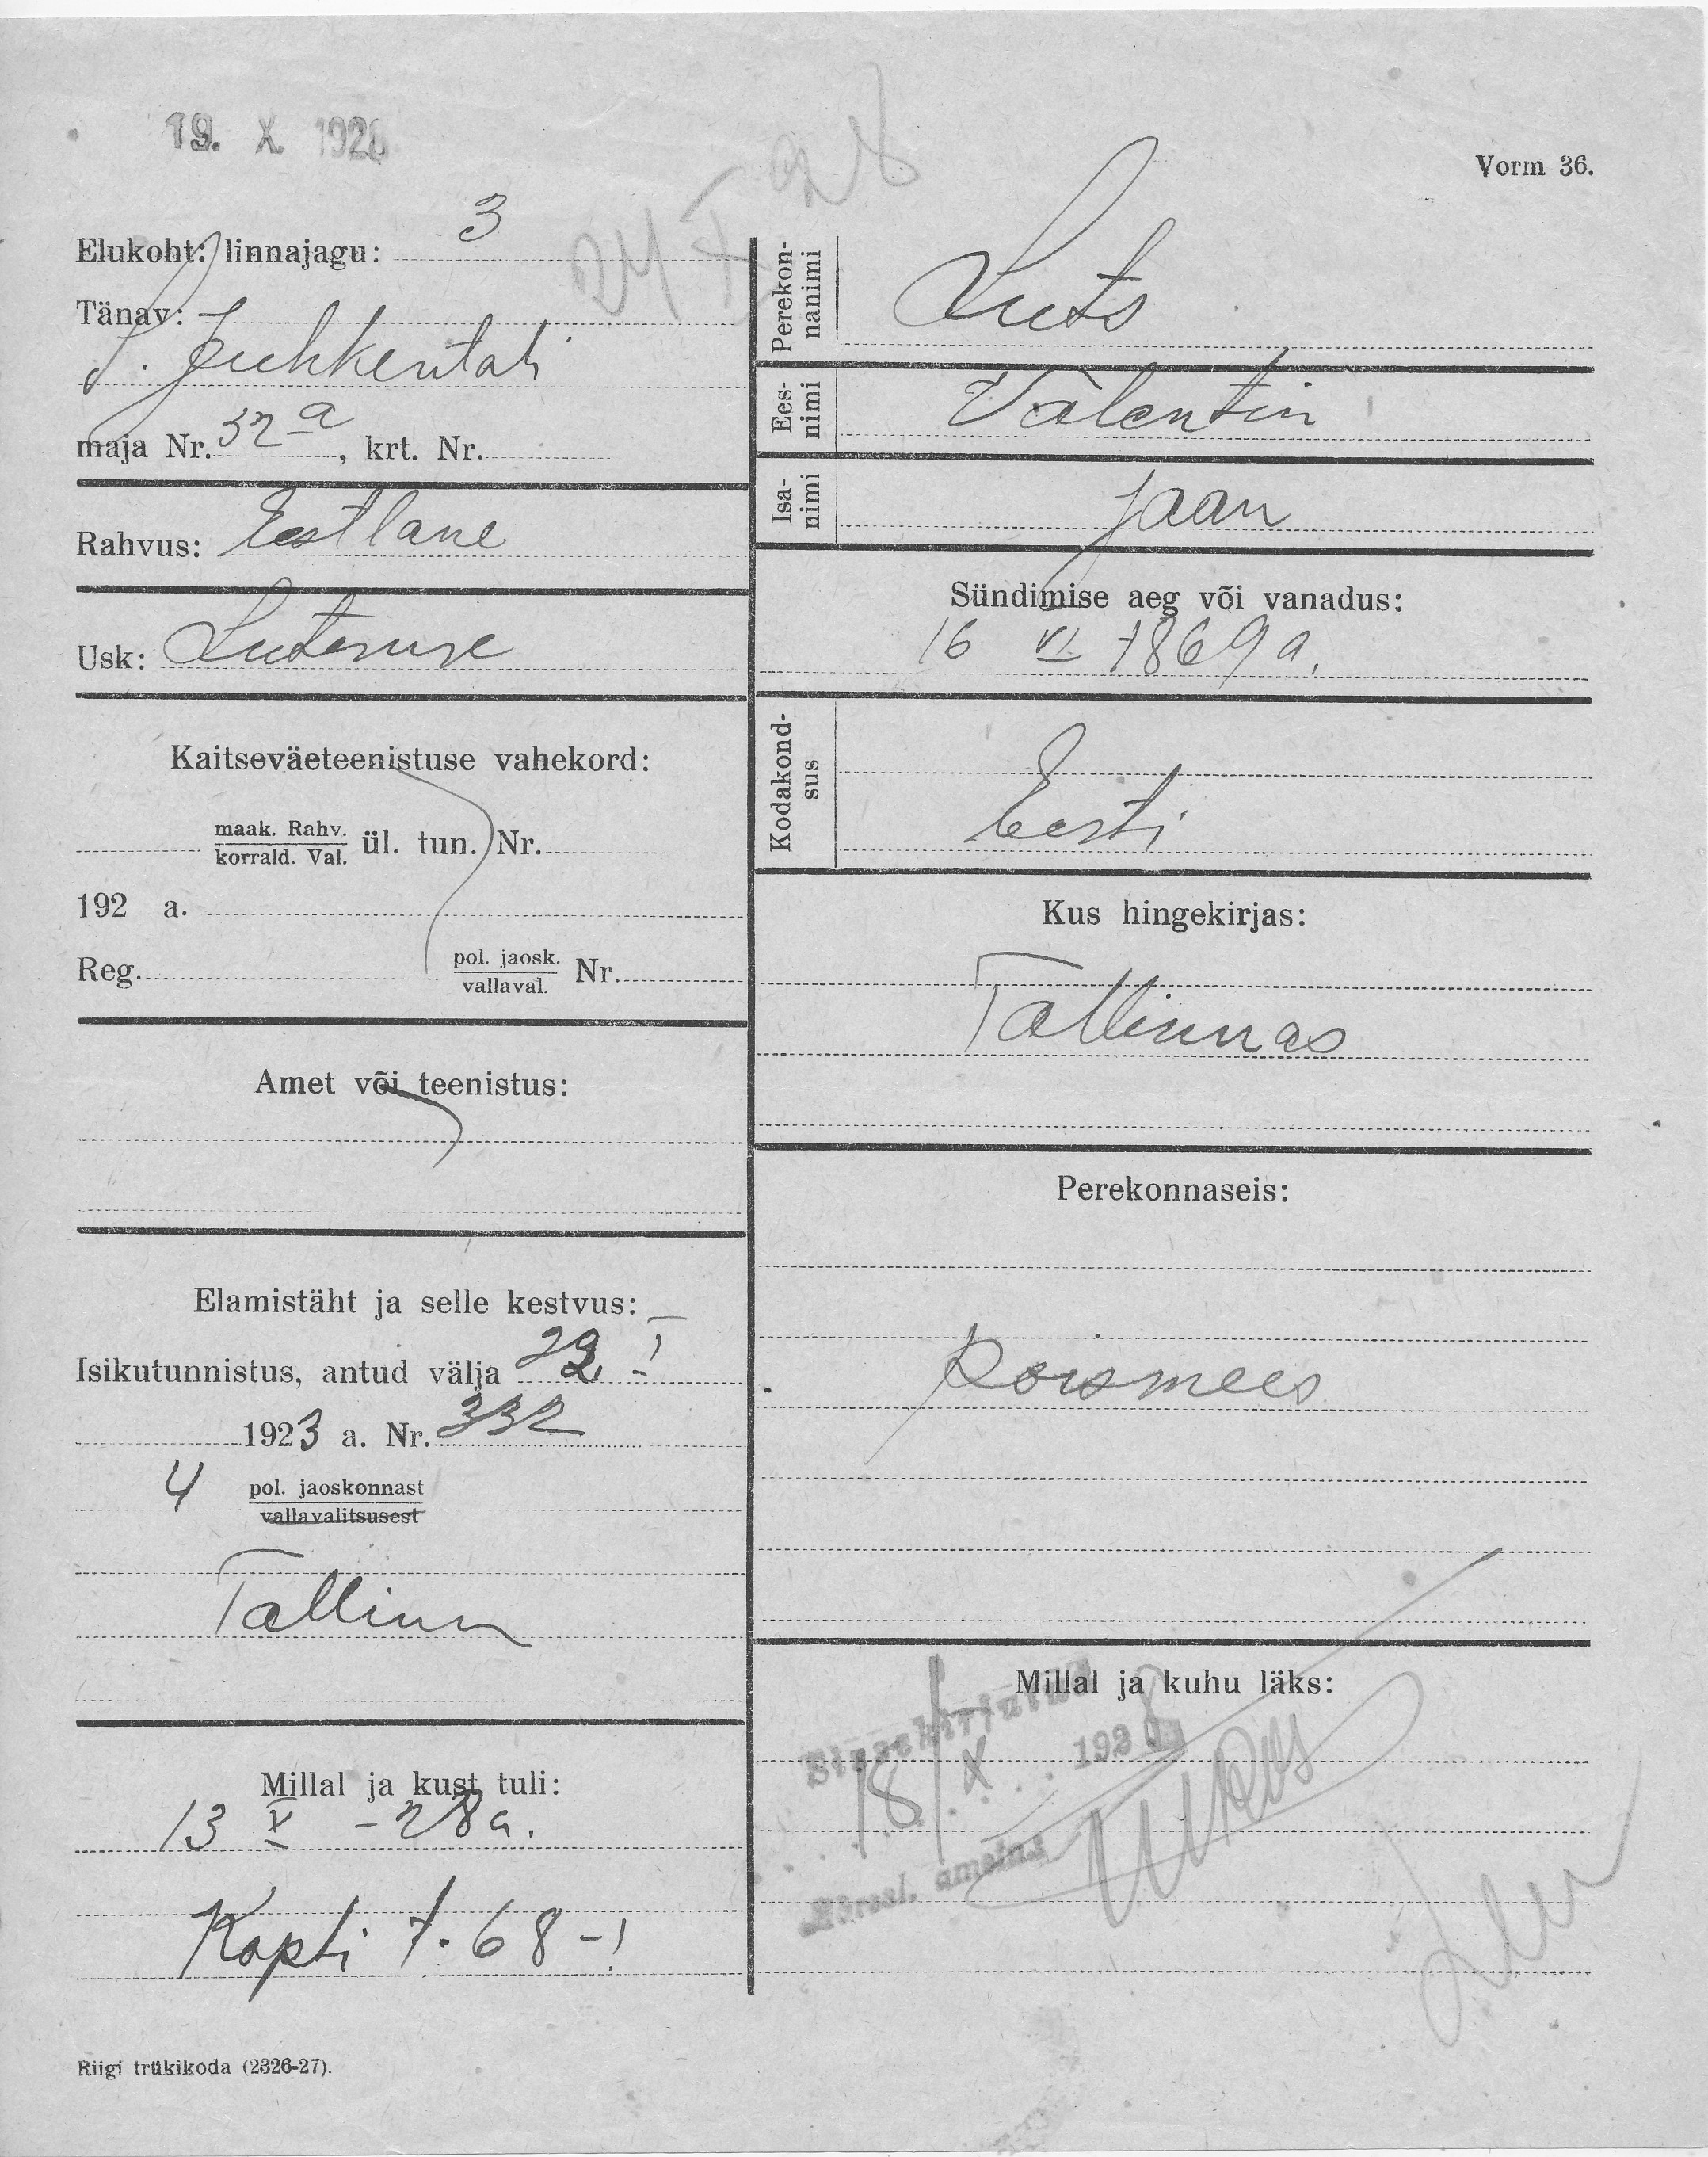 19. X. 1928
24 X 28
Vorm 36.
Elukoht: linnajagu: 3
Tänav:
J. Juhkentali
maja Nr. 32 a, krt. Nr.
Rahvus: Eestlane
Usk: Luteruse
Kaitseväeteenistuse vahekord:
maak. Rahv.
korrald. Val. ül. tun. Nr.
192 a.
Reg. pol. jaosk.
vallaval. Nr.
Amet või teenistus:
Elamistäht ja selle kestvus:
Isikutunnistus, antud välja 22 I
1923 a. Nr. 332
4 pol. jaoskonnast
vallavalitsusest
Tallinn
Millal ja kust tuli:
13 X - 28 a.
Kopli t. 68-1
Riigi trükikoda (2326-27).
Perekon-
nanimi
Luts
Ees-
nimi
Valentin
Isa-
nimi
Jaan
Sündimise aeg või vanadus:
16 VI 1869 a.
Kodakond-
sus
Eesti
Kus hingekirjas:
Tallinnas
Perekonnaseis:
Poismees
Millal ja kuhu läks:
Sissekirjutud
18/X 1928
ametnik